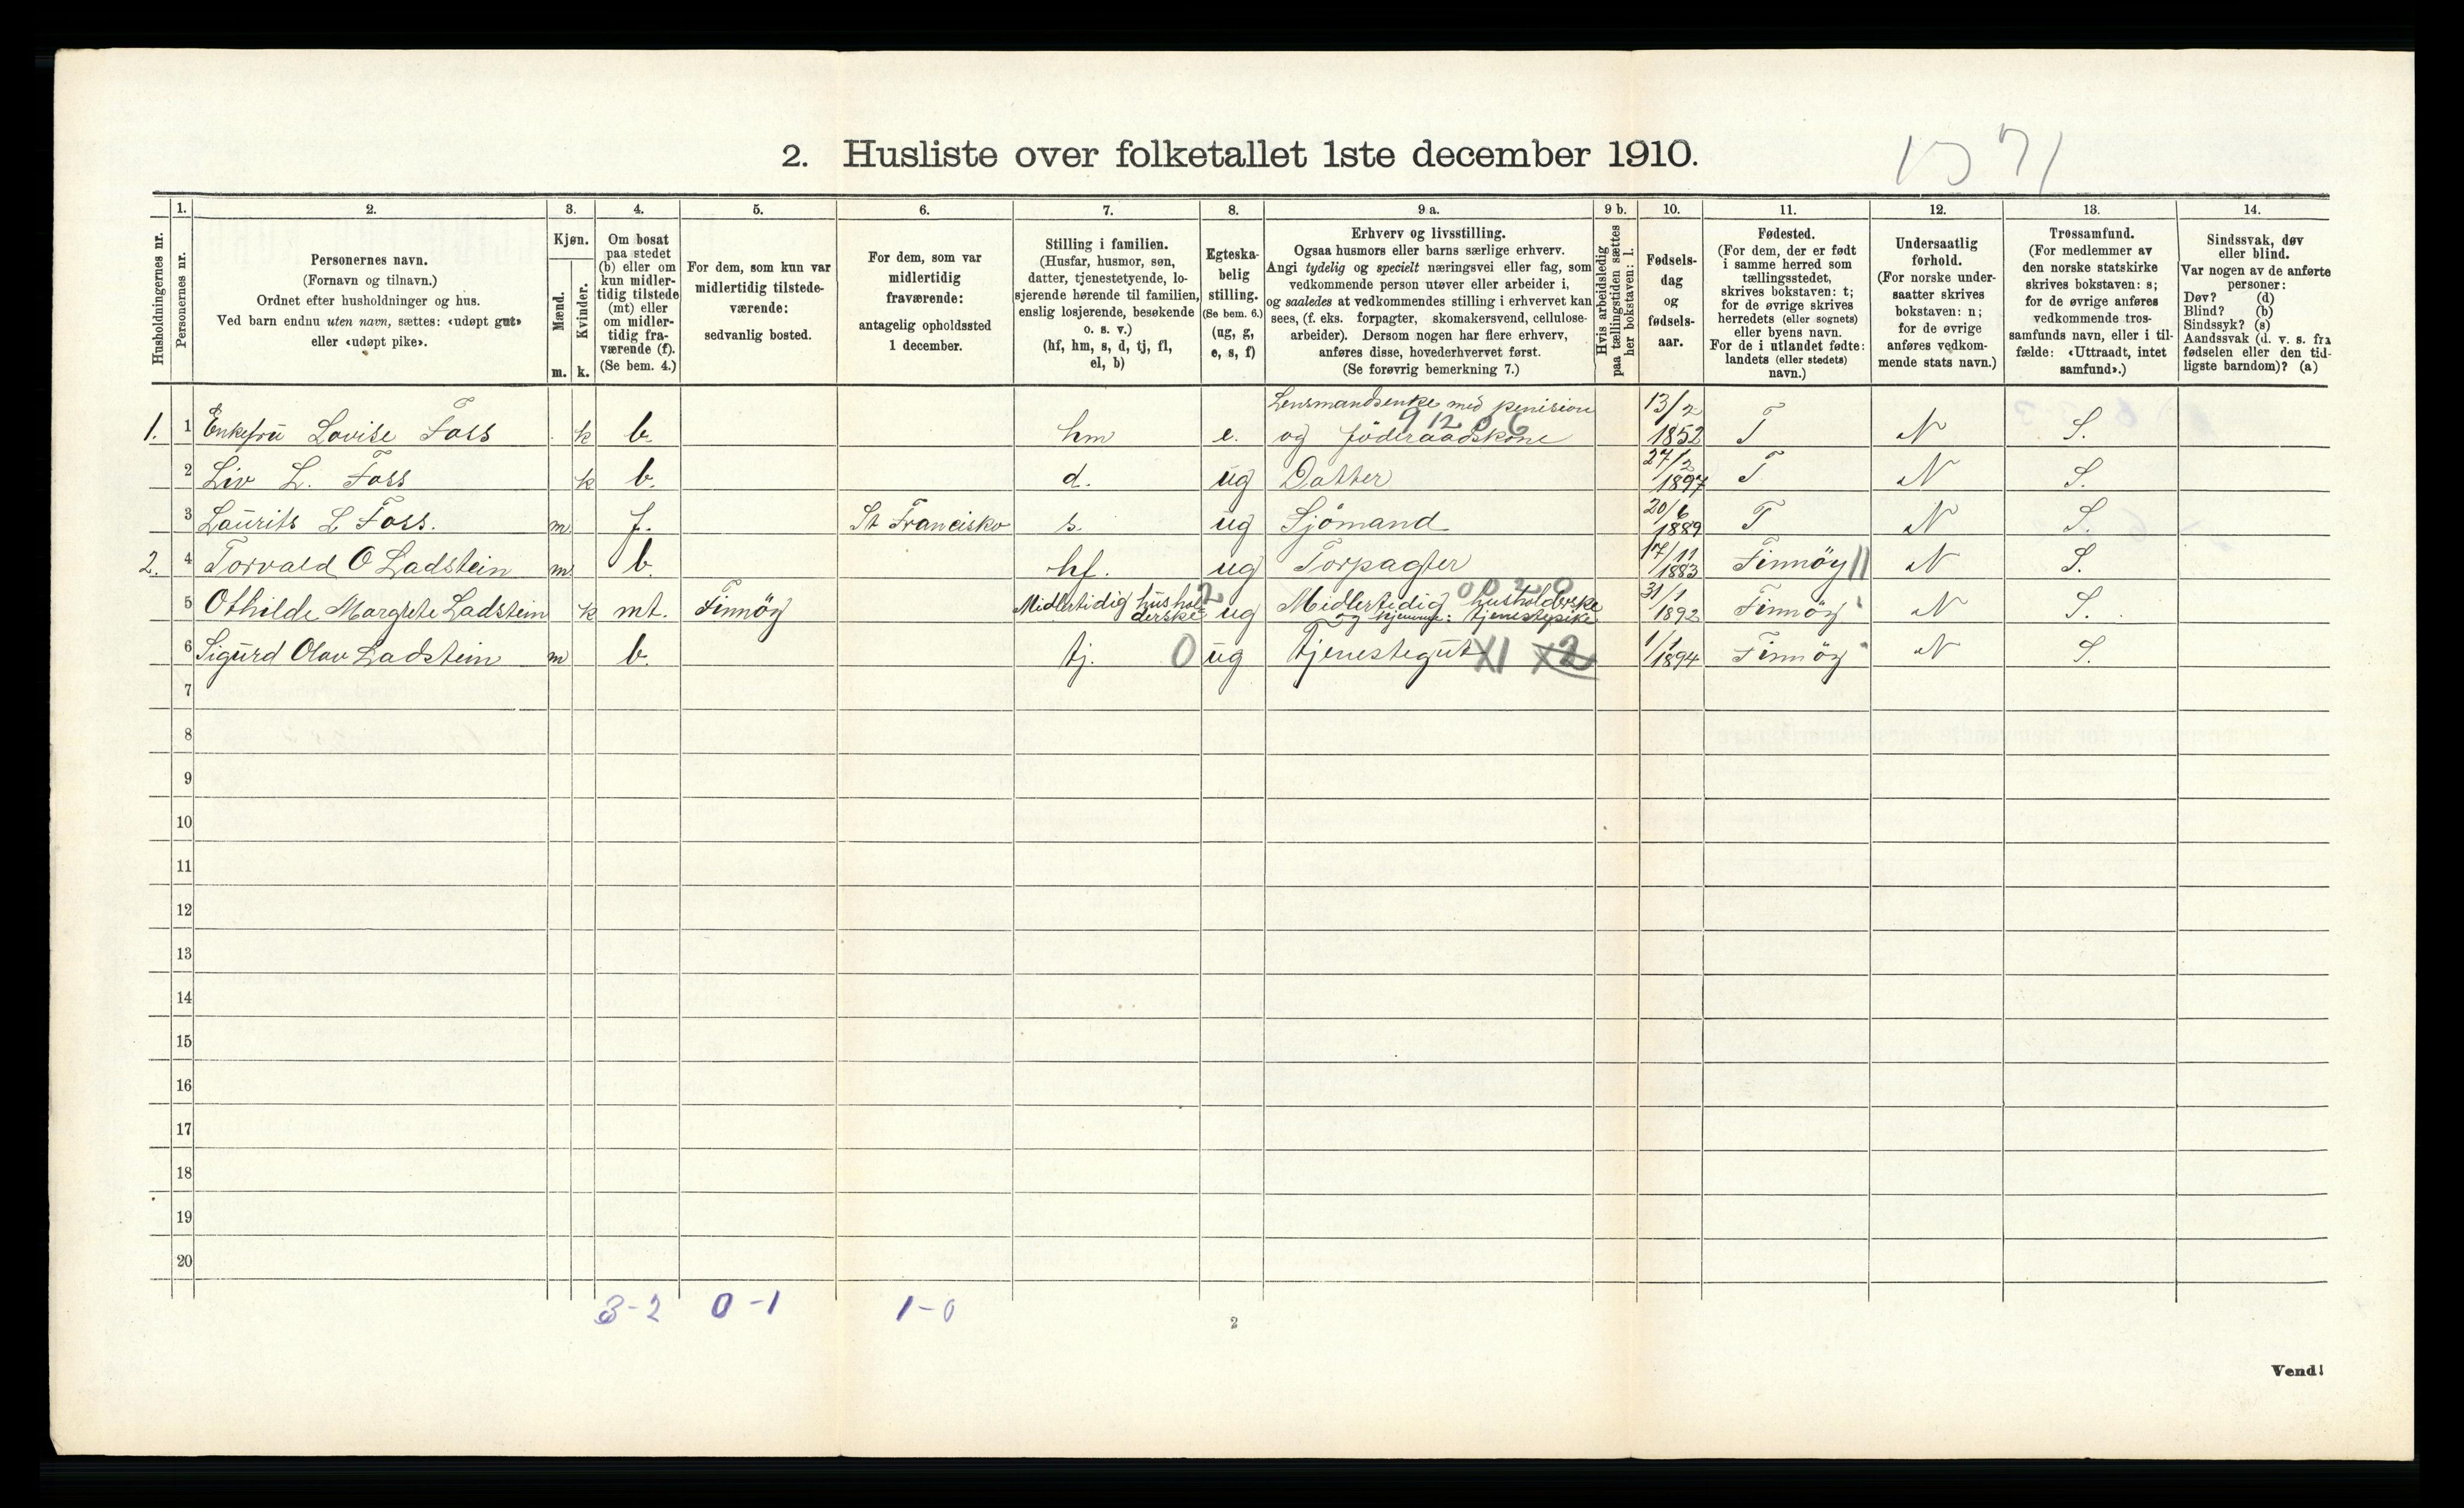 2. Husliste over folketallet 1ste december 1910.
Husholdningernes nr.
1.
Personernes nr.
2.
Personernes navn.
(Fornavn og tilnavn.)
Ordnet efter husholdninger og hus.
Ved barn endnu uten navn, sættes: «udøpt gut»
eller «udøpt pike».
3.
Kjøn.
Mænd.
Kvinder.
m. k.
4.
Om bosat
paa stedet
(b) eller om
kun midler-
tidig tilstede
(mt) eller
om midler-
tidig fra-
værende (f).
(Se bem. 4.)
5.
For dem, som kun var
midlertidig tilstede-
værende:
sedvanlig bosted.
6.
For dem, som var
midlertidig
fraværende:
antagelig opholdssted
1 december.
7.
Stilling i familien.
(Husfar, husmor, søn,
datter, tjenestetyende, lo-
sjerende hørende til familien,
enslig losjerende, besøkende
o. s. v.)
(hf, hm, s, d, tj, fl,
el, b)
8.
Egteska-
belig
stilling.
(Se bem. 6.)
(ug, g,
e, s, f)
9 a.
Erhverv og livsstilling.
Ogsaa husmors eller barns særlige erhverv.
Angi tydelig og specielt næringsvei eller fag, som
vedkommende person utøver eller arbeider i,
og saaledes at vedkommendes stilling i erhvervet kan
sees, (f. eks. forpagter, skomakersvend, cellulose-
arbeider). Dersom nogen har flere erhverv,
anføres disse, hovederhvervet først.
(Se forøvrig bemerkning 7.)
9 b.
Hvis arbeidsledig
paa tællingstiden sættes
her bokstaven: l.
10.
Fødsels-
dag
og
fødsels-
aar.
11.
Fødested.
(For dem, der er født
i samme herred som
tællingsstedet,
skrives bokstaven: t;
for de øvrige skrives
herredets (eller sognets)
eller byens navn.
For de i utlandet fødte:
landets (eller stedets)
navn.)
12.
Undersaatlig
forhold.
(For norske under-
saatter skrives
bokstaven: n;
for de øvrige
anføres vedkom-
mende stats navn.)
13.
Trossamfund.
(For medlemmer av
den norske statskirke
skrives bokstaven: s;
for de øvrige anføres
vedkommende tros-
samfunds navn, eller i til-
fælde: «Uttraadt, intet
samfund».)
14.
Sindssvak, døv
eller blind.
Var nogen av de anførte
personer:
Døv? (d)
Blind? (b)
Sindssyk? (s)
Aandssvak (d. v. s. fra
fødselen eller den tid-
ligste barndom)? (a)
1. 1 Enkefrü Lovise Foss k b. hm e. Lensmandsenke med penision og föderaadskone 9 12 0 6 13/2 1852 T N S.
2 Liv L. Foss k b. d. ug Datter 27/2 1897 T N S.
3 Laurits L Foss. m f. St Francisko s. ug Sjömand 20/6 1889 T N S.
2. 4 Torvald O Ladstein m b. hf. ug Forpagter 17/11 1883 Finnöy N S.
5 Othilde Margrete Ladstein k mt. Finnöy Midlertidig hushol- derske 2 ug Midlertidig husholderske og hjemme: tjenestepike 0 0 2 0 31/1 1892 Finnöy N S.
6 Sigurd Olav Ladstein m b. tj. 0 ug Tjenestegut X1 X2 1/1 1894 Finnöy N S.
7
8
9
10
11
12
13
14
15
16
17
18
19
20
3-2 0-1 1-0
2
Vend!